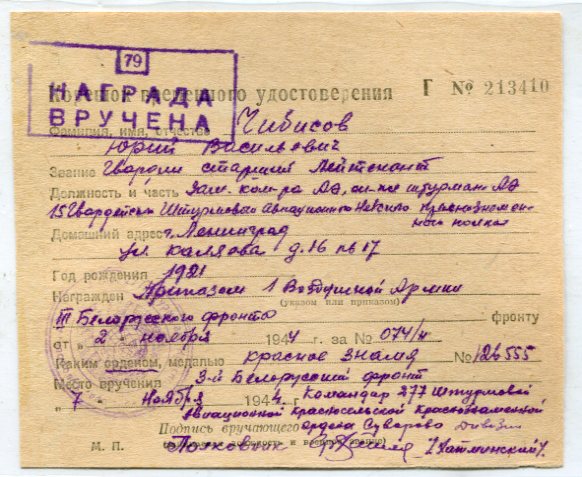 79
НАГРАДА
ВРУЧЕНА
Корешок временного удостоверения Г № 213410
Фамилия, имя, отчество Чибисов
Юрий Васильевич
Звание Гвардии старший лейтенант
Должность и часть Зам. ком-ра АЭ, он-же штурман АЭ
15 Гвардейск Штурмовой Авиационного Невского Краснознамен-
ного полка
Домашний адрес г. Ленинград
ул. Каляева д. 16 кв 17
Год рождения 1921
Награжден Приказом 1 Воздушной Армии
(указом или приказом)
III Белорусского фронта фронту
от „ 2 " ноября 1944 г. за № 074/н
Каким орденом, медалью красное знамя № 126555
Место вручения 3-й Белорусский фронт
„ 7 " ноября 1944 Командир 277 Штурмовой
Авиационной Красносельской Краснознаменной
ордена Суворова дивизии
Подпись вручающего
(должность и военное звание)
М. П. Полковник /Хатминский/.